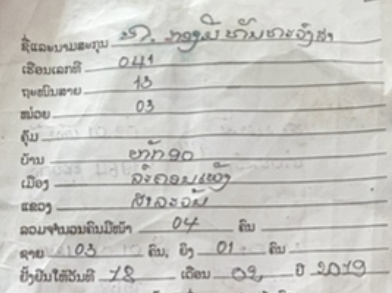 ຊື່ແລະນາມສະກຸນ ທ.
ເຮືອນເລກທີ 041
ຖະໜົນສາຍ 13
ໜ່ວຍ 03
ຄຸ້ມ
ບ້ານ ຫຼັກ 90
ເມືອງ ລະຄອນເພັງ
ແຂວງ ສາລະວັນ
ລວມຈຳນວນຄົນມີໜ້າ 04 ຄົນ
ຊາຍ 03 ຄົນ, ຍິງ 01 ຄົນ
ຢັ້ງຢືນໃຫ້ວັນທີ 18 ເດືອນ 02 ປີ 2019